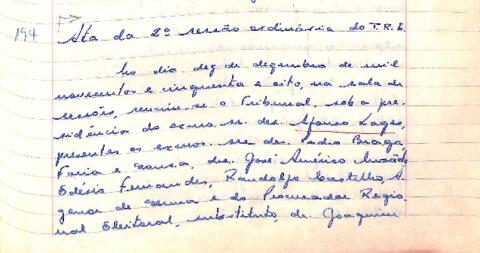 194
Ata da 2ª sessão ordinária do T.R.E.
No dia dez de dezembro de mil
novecentos e cinquenta e oito, na sala de
sessões, reuniu-se o Tribunal, sob a pre-
sidência do exmo. sr. des. Afonso Lages,
presentes os exmos. srs. drs. Pedro Braga,
Faria e Sousa, des. José Américo Macêdo,
Edésio Fernandes, Randolfo Castilho, A-
genor de Senna e do Procurador Regio
nal Eleitoral, substituto, dr. Joaquim